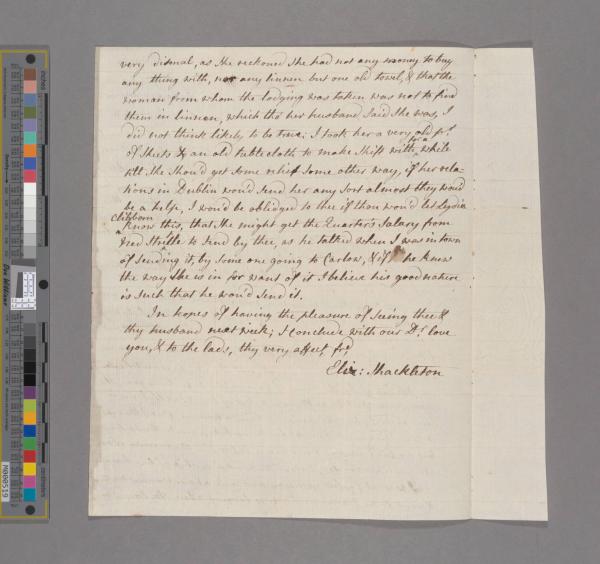 very dismal, as she reckoned she had not any money to buy
any thing with, nor any linnen but one old towel, & that the
woman from whom the lodging was taken was not to find
them in linnen, which tho' her husband said she was, I
did not think likely to be true; I took her a very old pr.
of sheets & an old table cloth to make shift with for a while
till she shou'd get some relief some other way, if her rela-
tions in Dublin wou'd send her any sort almost they wou'd
be a help, I wou'd be obliedged to thee if thou wou'd let Lydia
Clibborn
know this, that she might get the Quarter's Salary from
to send by thee, as he talked when I was in town
of sending it, by some one going to Carlow, & if he knew
the way she is in for want of it I believe his good nature
is such that he wou'd send it.
In hopes of having the pleasure of seeing thee &
thy husband next week; I conclude with our Dr. love
you, & to the lads, thy very affect. frd.
Eliz: Shackleton
inches
centimeters
M000519